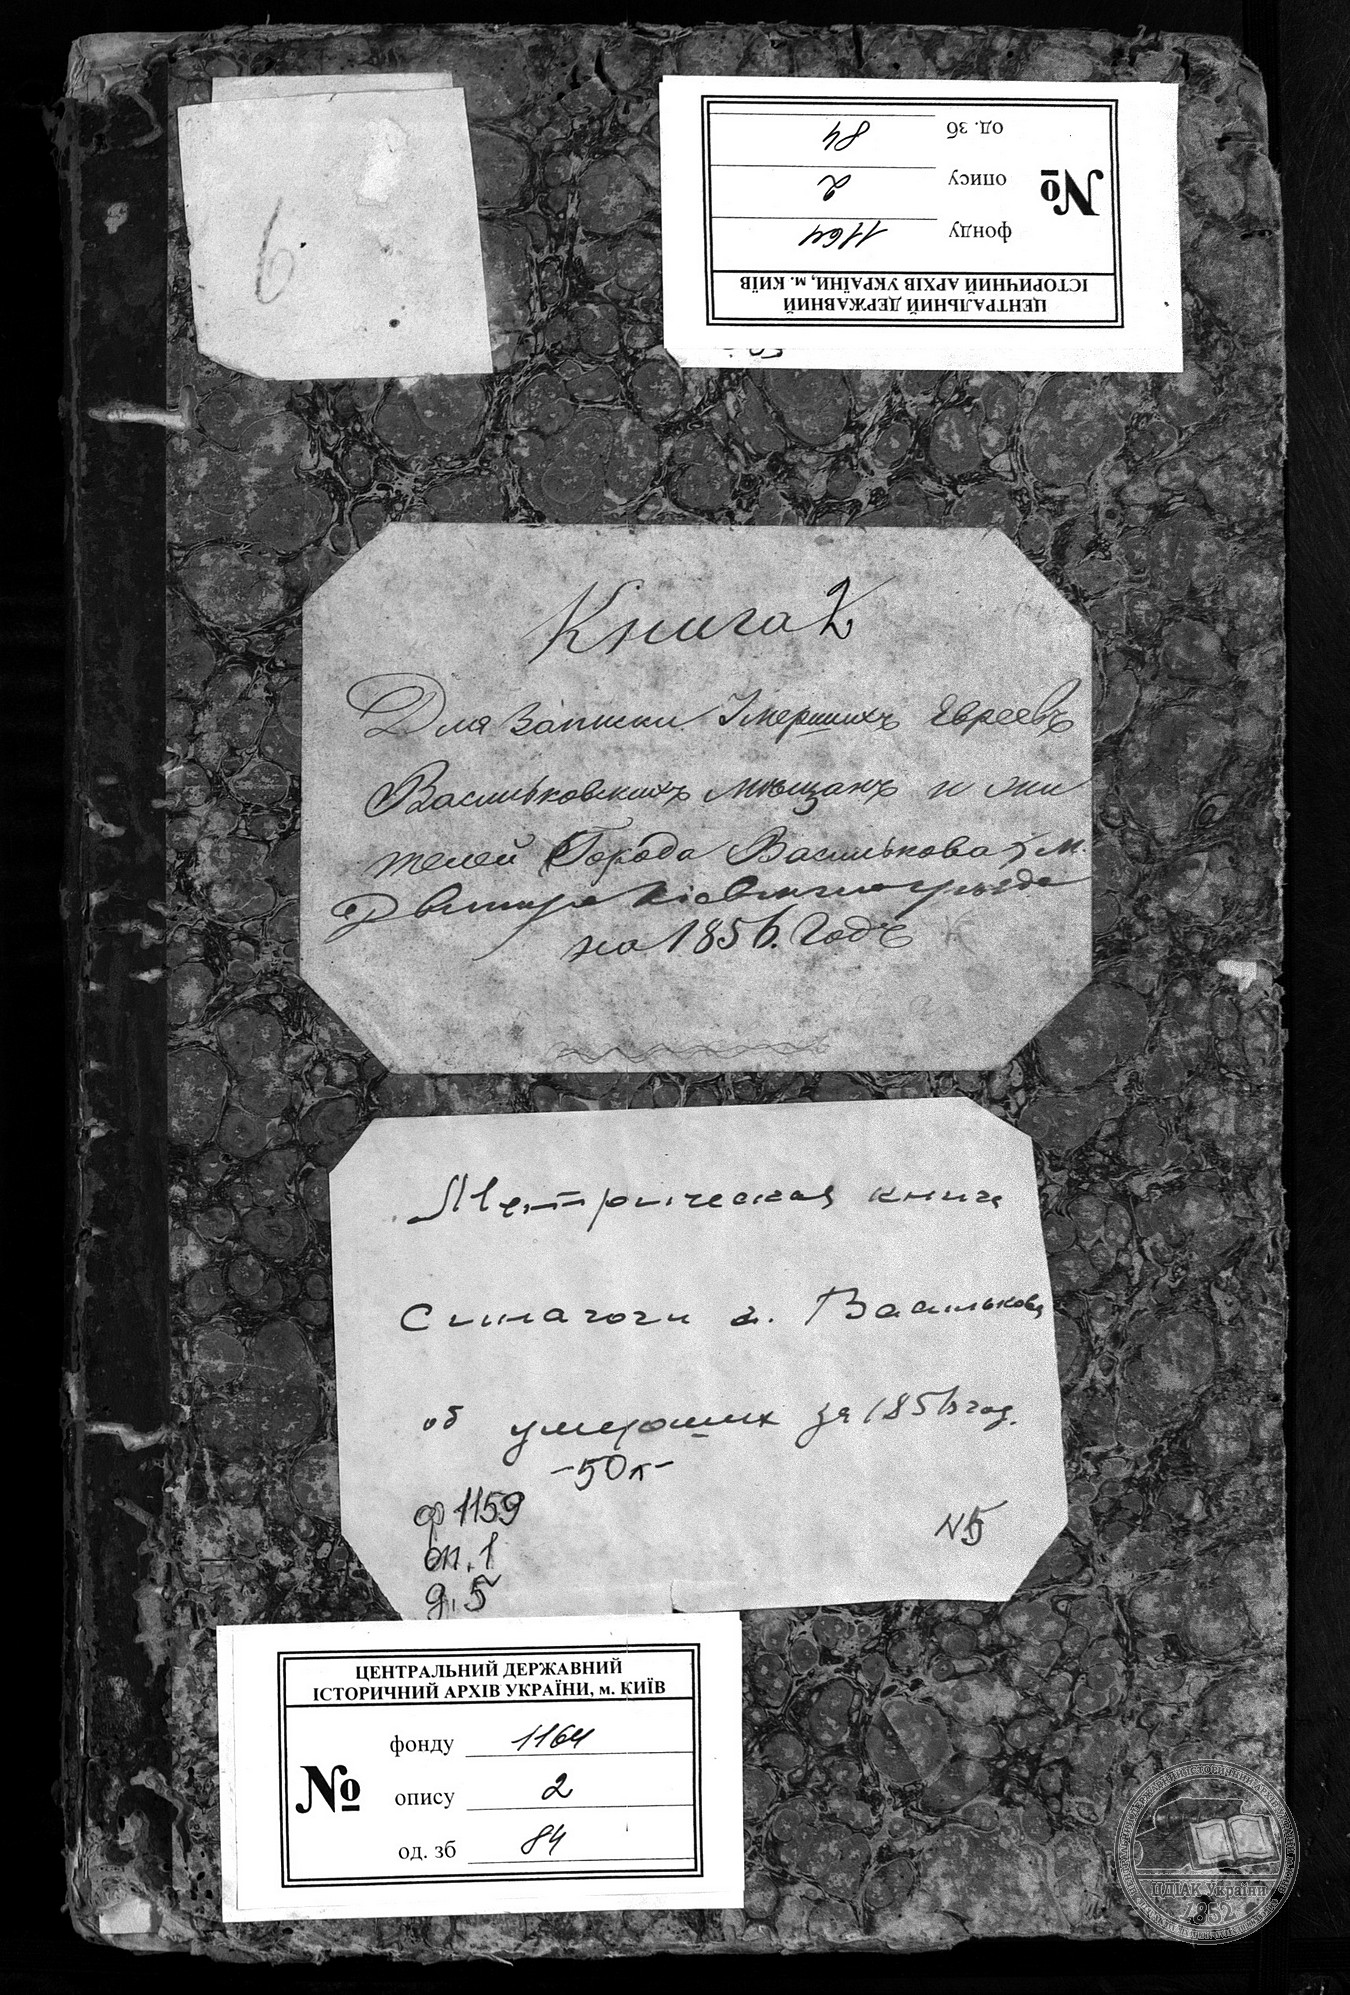 6
од. зб 84
опису 2
№
фонду 1164
ЦЕНТРАЛЬНИЙ ДЕРЖАВНИЙ
ІСТОРИЧНИЙ АРХІВ УКРАЇНИ, м. КИЇВ
Книга 2
Для записки Умершихъ Евреевъ
Васильковскихъ мѣщанъ и жи
телей Города Василькова
на 1856. Годъ
Метрическая книга
синагоги г. Василькова
об умерших за 1856 год.
-50л-
ф 1159
оп. 1
д. 5
N5
ЦЕНТРАЛЬНИЙ ДЕРЖАВНИЙ
ІСТОРИЧНИЙ АРХІВ УКРАЇНИ, м. КИЇВ
№
фонду 1164
опису 2
од. зб 84
ЦДІАК України
1852